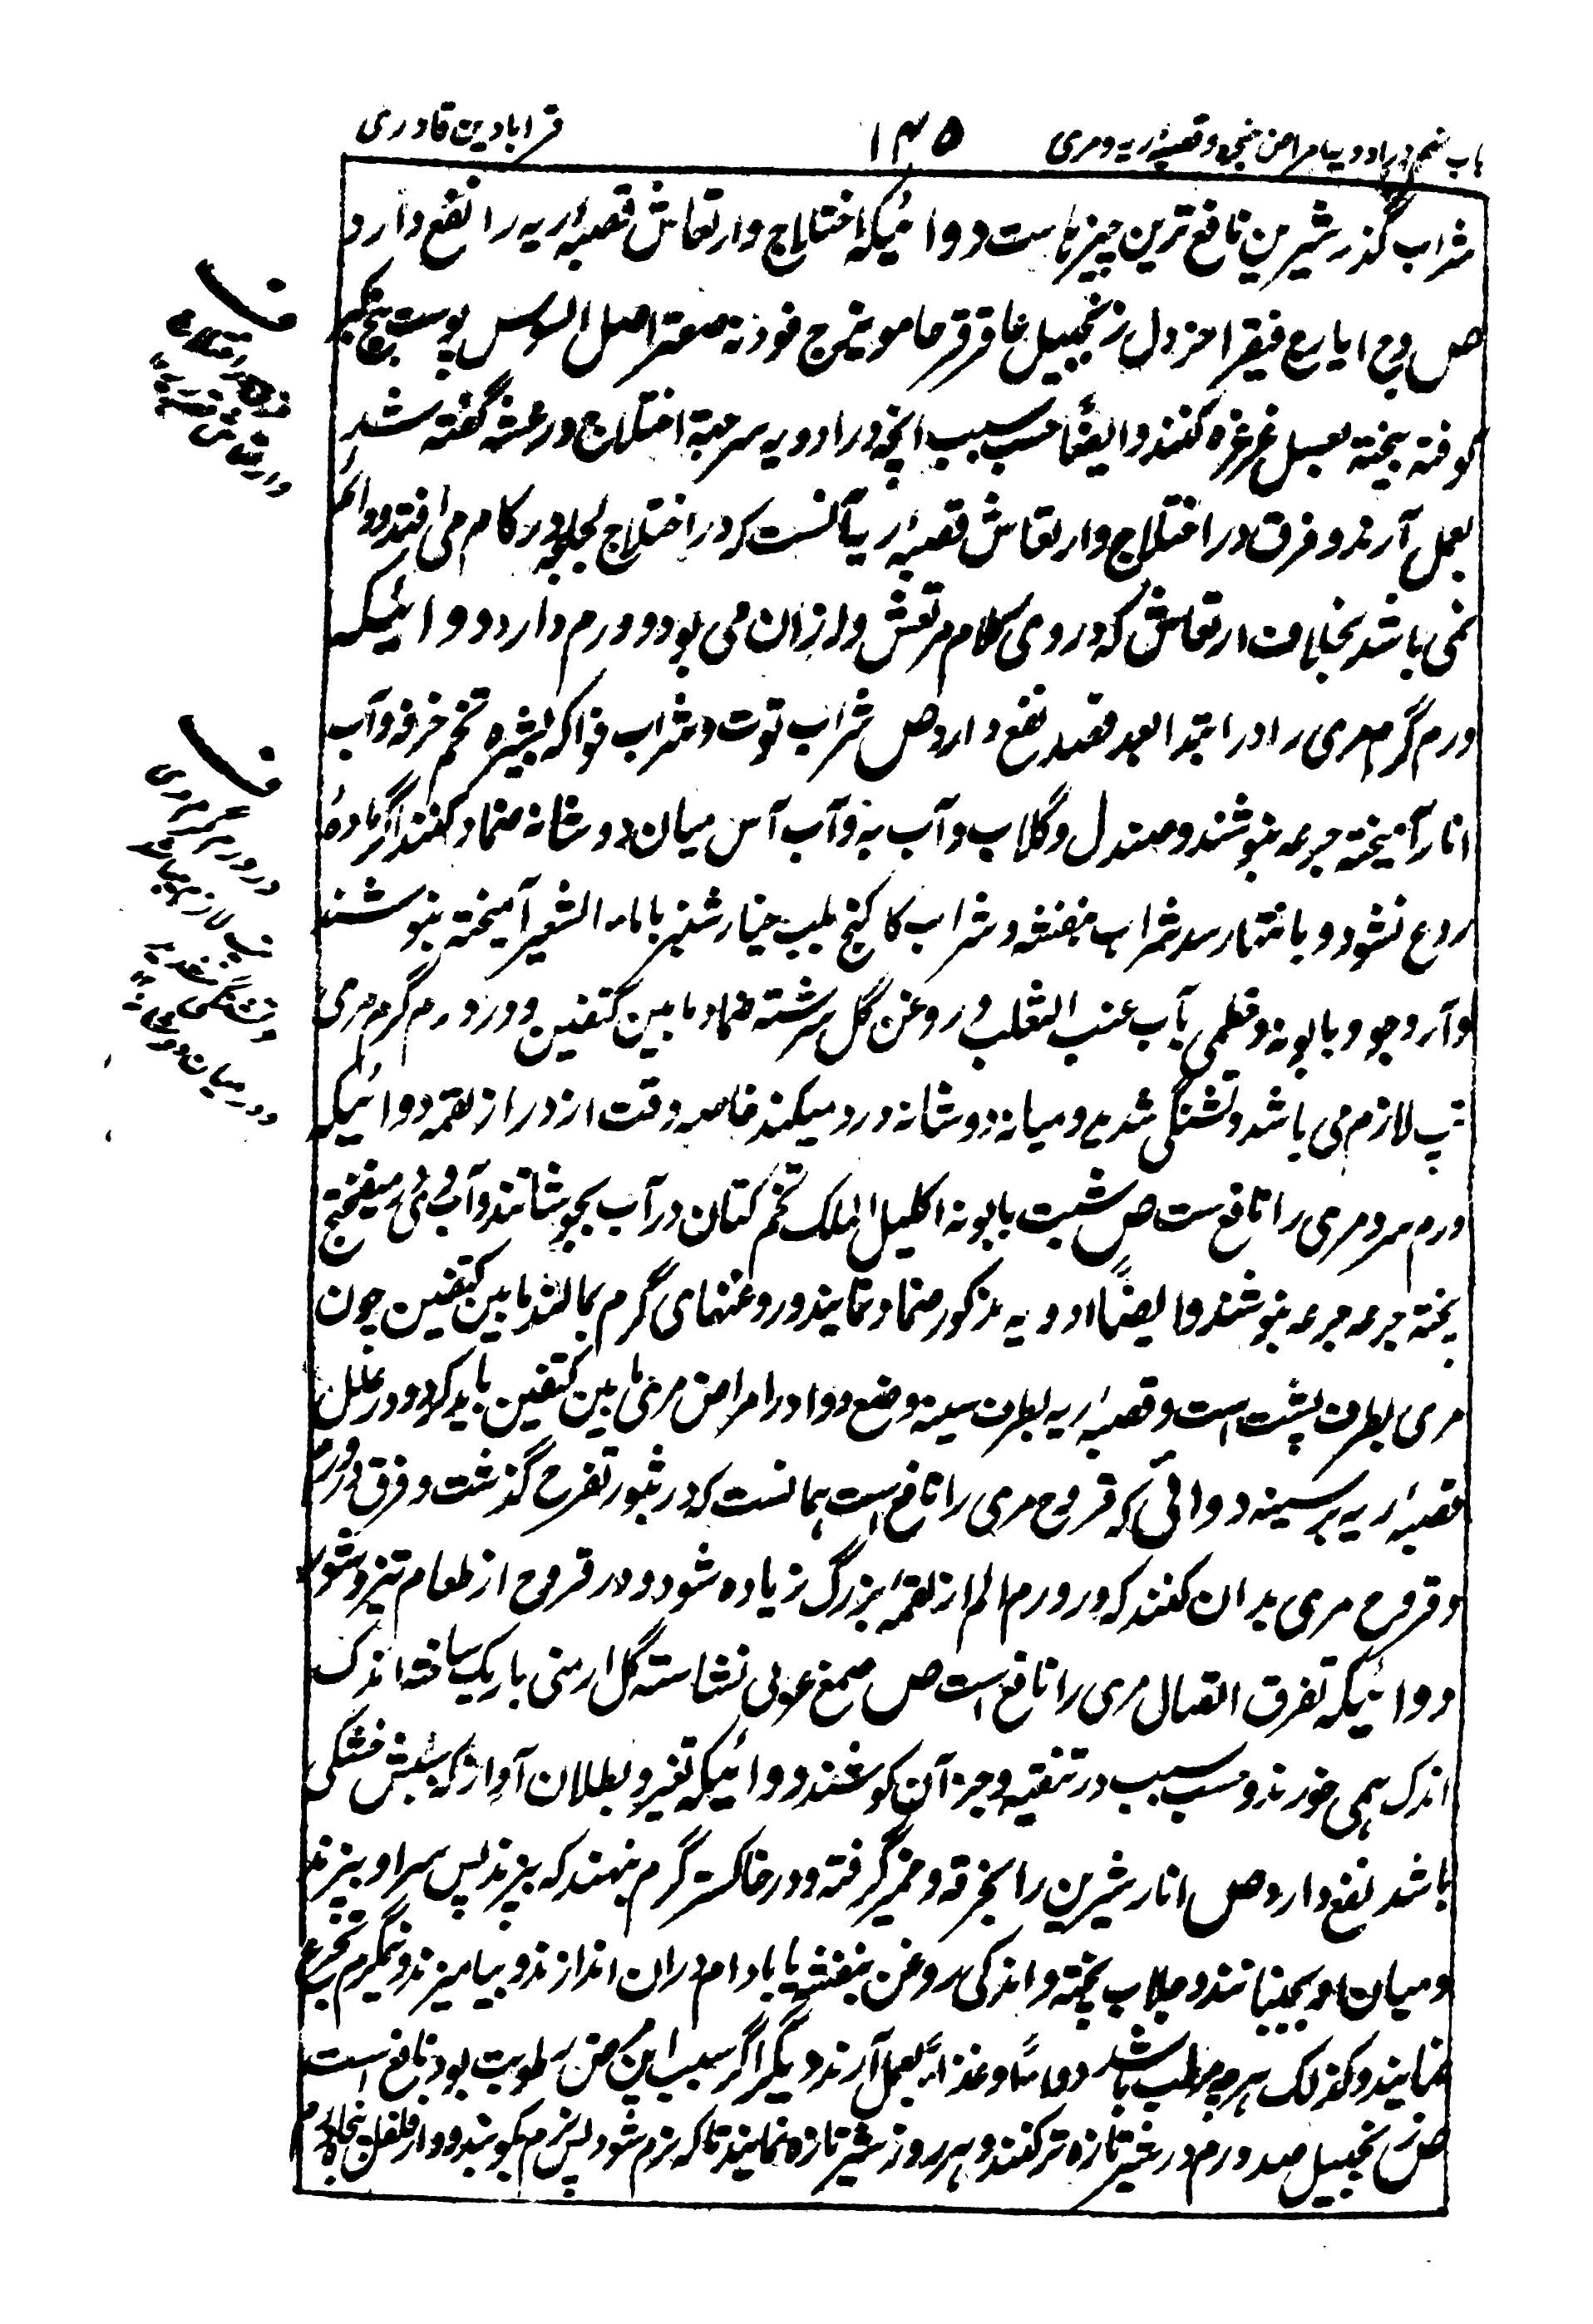 باب ششم در ادویه امراض حنجره و قصبهٔ ریه و مری
۱۴۵
قرابادین قادری
شراب گذر شیرین نافع ترین چیزهاست دوائیکه اختلاج و ارتعاش قصبهٔ ریه را نفع دارد
ص وج ایارج فیقرا خردل زنجبیل عاقرقرحا مویزج فودنه صعتر اصل السوس پوست بیخ کبر
کوفته بیخته بعسل غرغره کنند و ایضاً حسب سبب انچه در ادویه سرجیة اختلاج و رعشه گفته شد
بعمل آرند و فرق در اختلاج و ارتعاش قصبهٔ ریه آنست که در اختلاج لجلجه در کلام می افتد و دائم
نمی باشد بخلاف ارتعاش که در وی کلام مرتعش و لرزان می بود و ورم دارد دوائیکه
ورم گرم مری را در ابتدا بعد فصد نفع دارد ص شراب توت و شراب فواکه بشیره تخم خرفه و آب
انار آمیخته جرعه بنوشند و صندل و گلاب و آب به و آب آس میان دو شانه ضماد کنند اگر مادهٔ
ردع نشود و بانتها رسد شراب بنفشه و شراب کاکنج بلب خیارشنبر با ماء الشعیر آمیخته بنوشند
و آرد جو و بابونه و خطمی بآب عنب الثعلب و روغن گل سرشته ضماد مابین کتفین و در ورم گرم مری
تپ لازم می باشد و تشنگی شدید و میانه دو شانه درد میکند خاصه وقت ازدراز لقمه دوائیکه
ورم سرد مری را نافع ست ص شبت بابونه اکلیل الملک تخم کتان در آب بجوشانند و آب وی میفختج
پخته جرعه جرعه بنوشند و ایضاً ادویه مذکور ضماد نمایند و روغنهای گرم بمالند مابین کتفین چون
مری بطرف پشت است و قصبهٔ ریه بطرف سینه وضع دوا در امراض مری مابین کتفین باید کرد و در علل
قصبهٔ ریه بر سینه دوائی که قروح مری را نافع است همانست که در بثور تقرح گذشت و فرق در ورم
و قروح مری بدان کنند که در ورم الم از لقمهٔ بزرگ زیاده شود و در قروح از طعام تیز و شور
دوائیکه تفرق اتصال مری را نافع است ص صمغ عربی نشاسته گل ارمنی باریک ساخته اندک
اندک همی خورند و حسب سبب در تنقیه و جز آن کوشند دوائیکه تغیر و بطلان آواز که سببش خشکی
باشد نفع دارد ص انار شیرین را بخرقه و خمیر گرفته و در خاکستر گرم بنهند که بپزد پس سر او ببرند
و میان او بجنبانند و جلاب پخته و اندکی روغن بنفشه یا بادام دران اندازند و بیامیزند و نیمگرم تجرع
نمایند و کذلک هرچه مرطب باشد دواءً و غذاءً بعمل آرند دیگر اگر سبب این مرض رطوبت بود نافع است
ص زنجبیل صد درم در شیر تازه تر کنند و هر روز شیر تازه نمایند تا که نرم شود پس نرم بکوبند و دارفلفل پنجاه درم
ف
ف
در ورم گرم مری
تپ لازم میباشد
و تشنگی شدید
و درد میان دو شانه